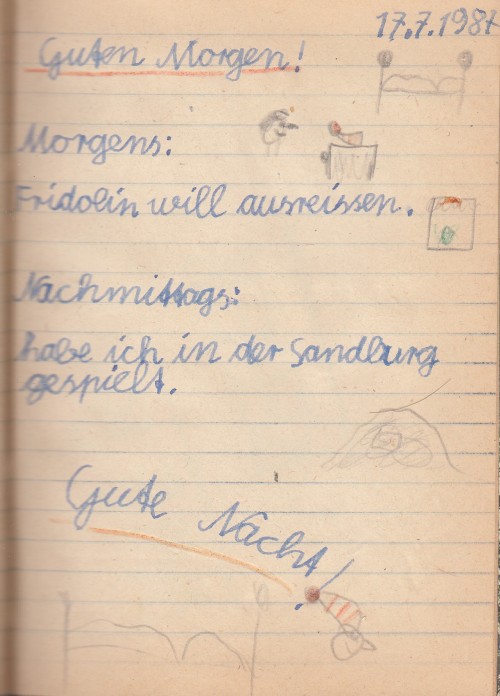 17.7.1987
Guten Morgen!
Morgens:
Fridolin will ausreissen.
Nachmittags:
habe ich in der Sandburg
gespielt.
Gute Nacht!